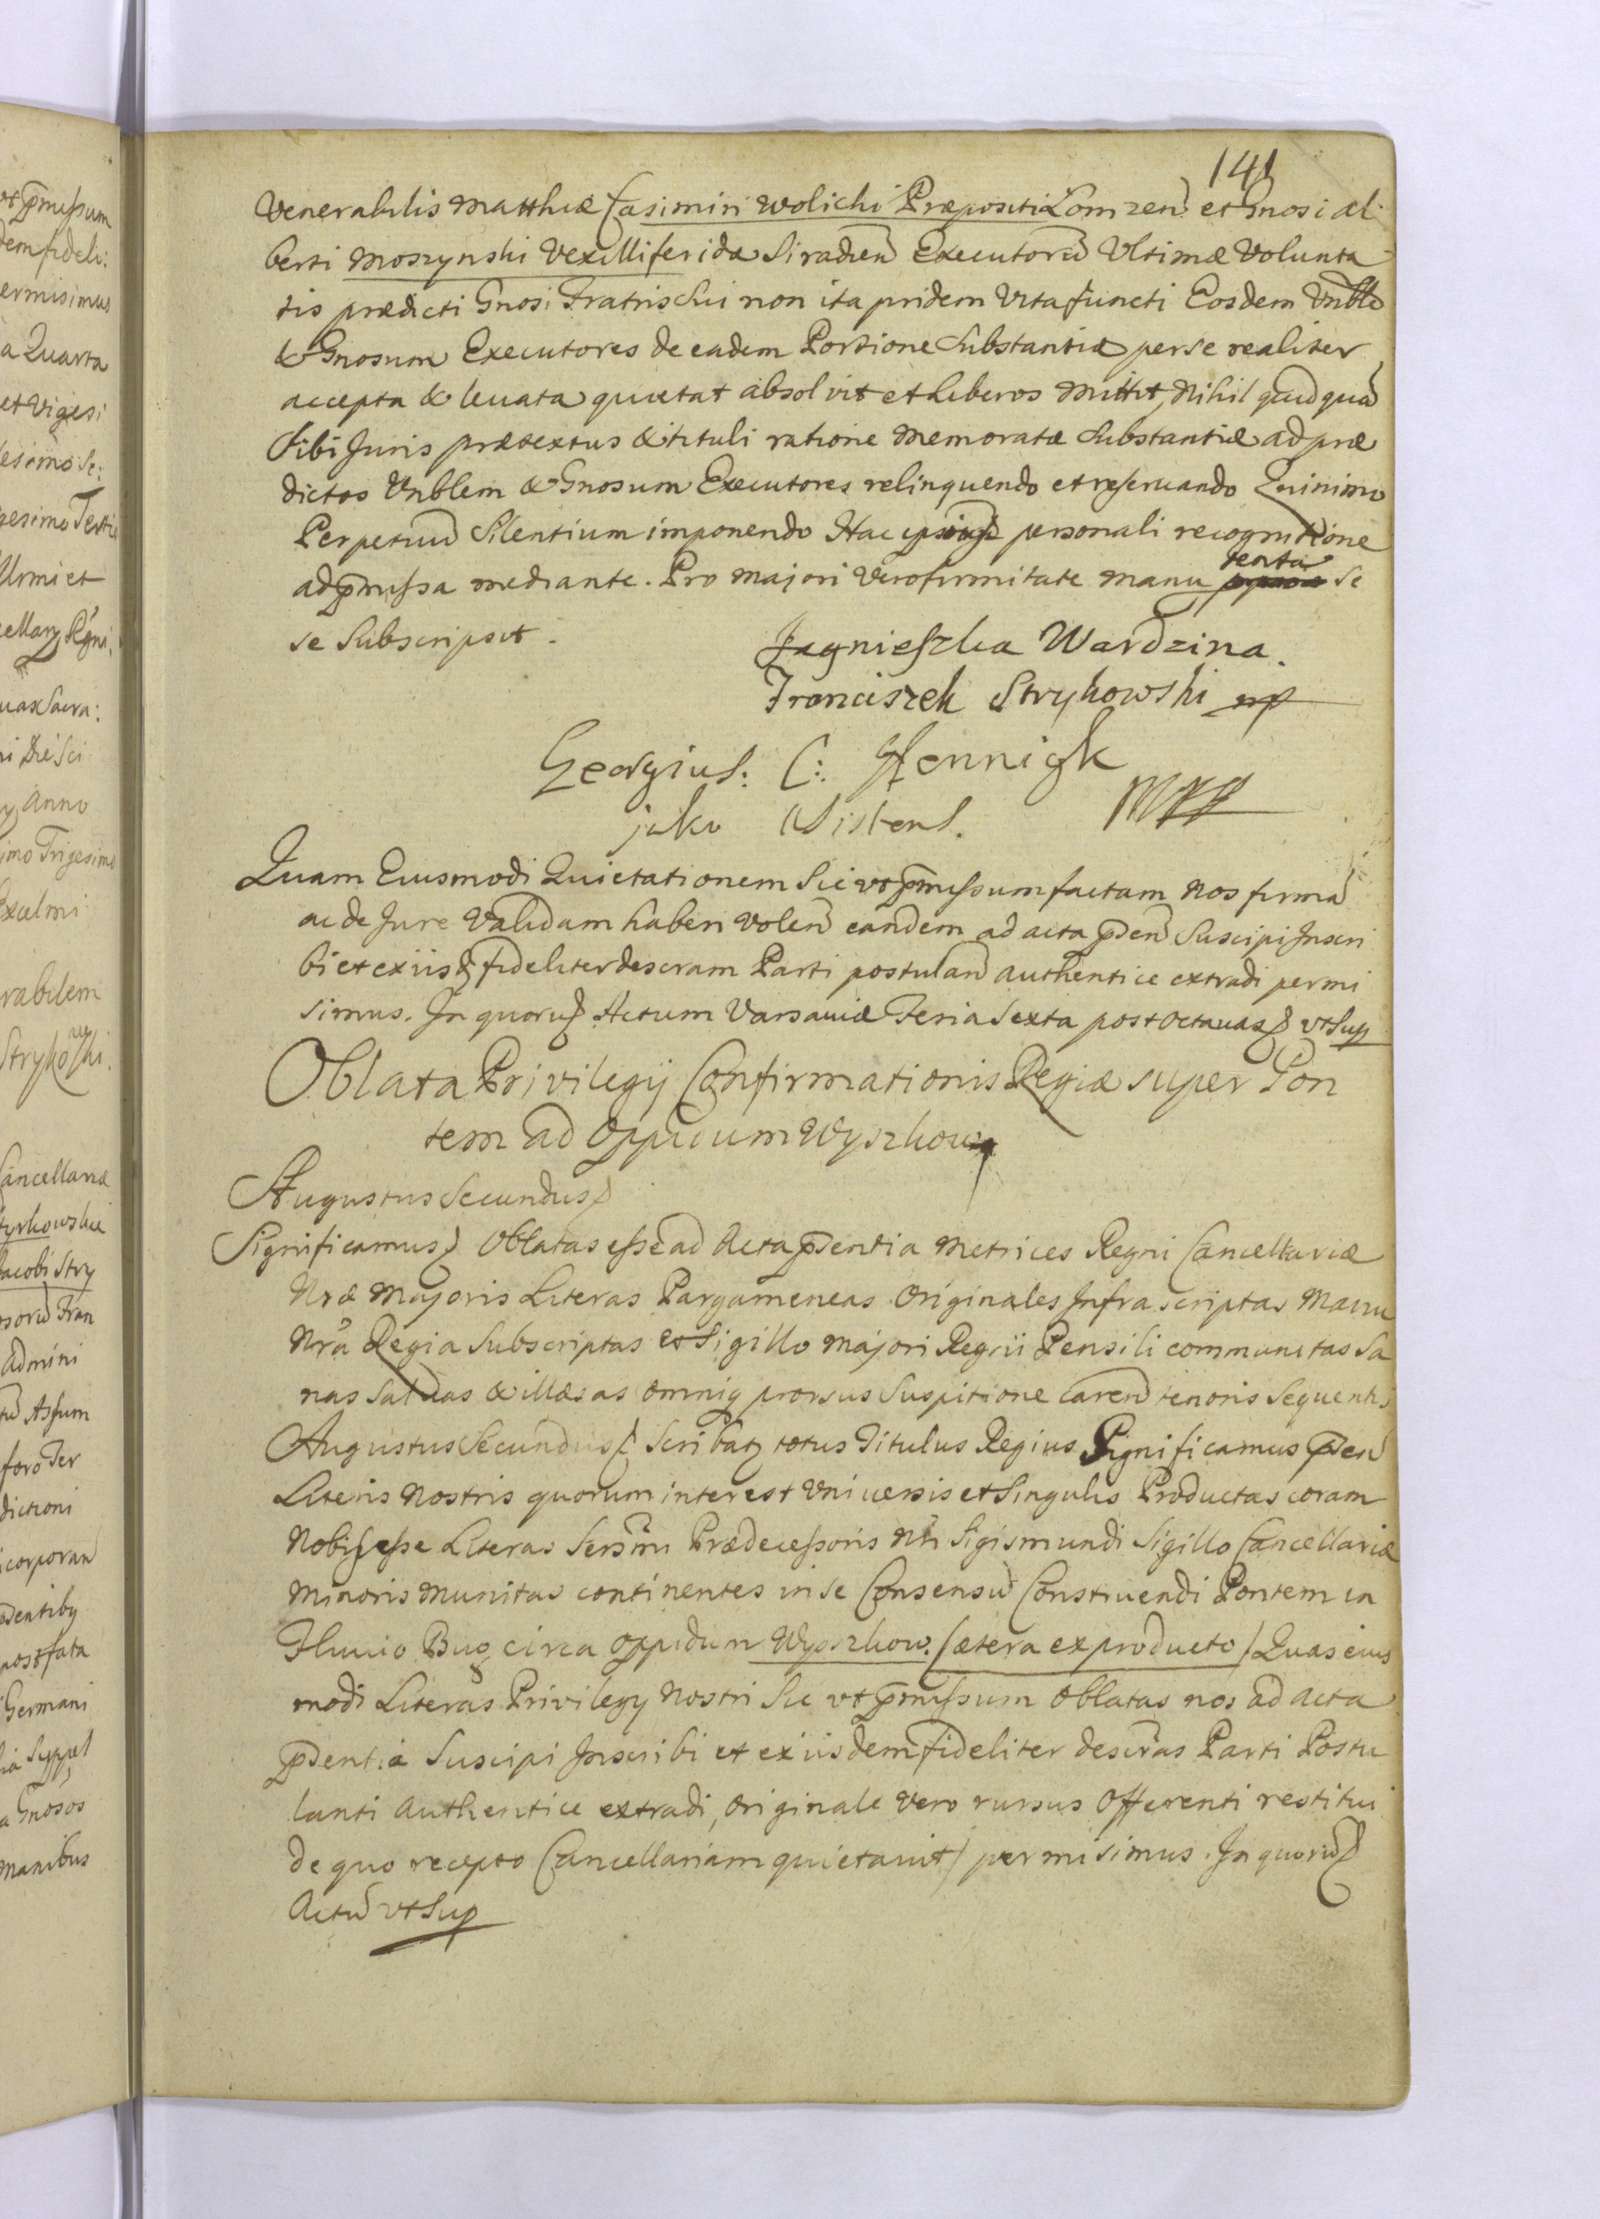 141
Venerabilis Matthiæ Casimiri Wolicki Præpositi Lomzen et Gnosi Al
berti Moszynski Vexilliferidæ Siradien Executorū Ultimæ Volunta
tis prædicti Gnosi Fratris Sui non ita pridem Vita functi Eosdem Vnble
& Gnosum Executores de eadem Portione Substantiæ per se realiter
accepta & levata quietat absolvit et Liberos Mittit, Nihil quidquā
Sibi Juris prætextus & tituli ratione Memoratæ Substantiæ ad præ
dictos Vnblem & Gnosum Executores relinquendo et reservando Quinimo
Perpetuū Silentium imponendo Hac ipsius personali recognitione
ad pmissa mediante. Pro majori Vero firmitate manu tenta se
se Subscripsit.
Jagnieszka Wardzina.
Franciszek Strykowski mp
Georgius: C: Hennigk
jako Assistens. MPP
Quam Eiusmodi Quietationem Sic vt pmissum factam Nos firmā
ac de Jure Validam haberi Volen eandem ad acta pden Suscipi Inscri
bi et ex iisd fideliter descram Parti postulan authentice extradi permi
simus. In quorū Actum Varsaviæ Feria Sexta post Octavas vt Sup
Oblata Privilegij Confirmationis Regiæ super Pon
tem ad Oppidum Wyszkow
Augustus Secundus
Significamus Oblatas esse ad Acta pdentia Metrices Regni Cancellariæ
Nræ Majoris Literas Pargameneas Originales Infra scriptas Manu
Nrā Regia Subscriptas et Sigillo majori Regni Pensili communitas Sa
nas Salvas & illæsas omniq prorsus Suspitione Caren tenoris Sequentis
Augustus Secundus Scribat totus Titulus Regius Significamus pden
Literis Nostris quorum interest Universis et Singulis Productas coram
Nobis esse Literas Sersmi Prædecessoris Nri Sigismundi Sigillo Cancellariæ
Minoris Munitas continentes in se Consensū Construendi Pontem in
Fluvio Bug circa Oppidum Wyszkow. (Cætera ex producto) Quas eius
modi Literas Privilegij Nostri Sic vt pmissum Oblatas nos ad Acta
pdentia Suscipi Inscribi et ex iisdem fideliter descras Parti Postu
lanti Authentice extradi, Originale Vero rursus Offerenti restitui
de quo recepto Cancellariam quietavit) permisimus. In quorū
Actū vt Sup